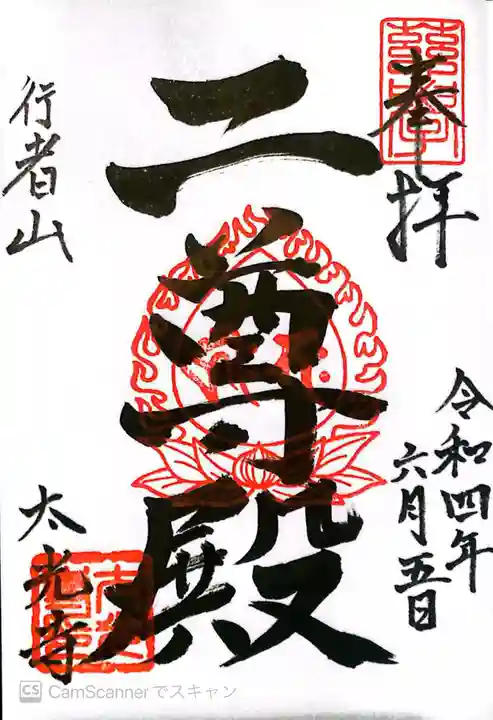 奉拝
令和四年
六月五日
二尊殿
行者山
太光寺
CS CamScannerでスキャン